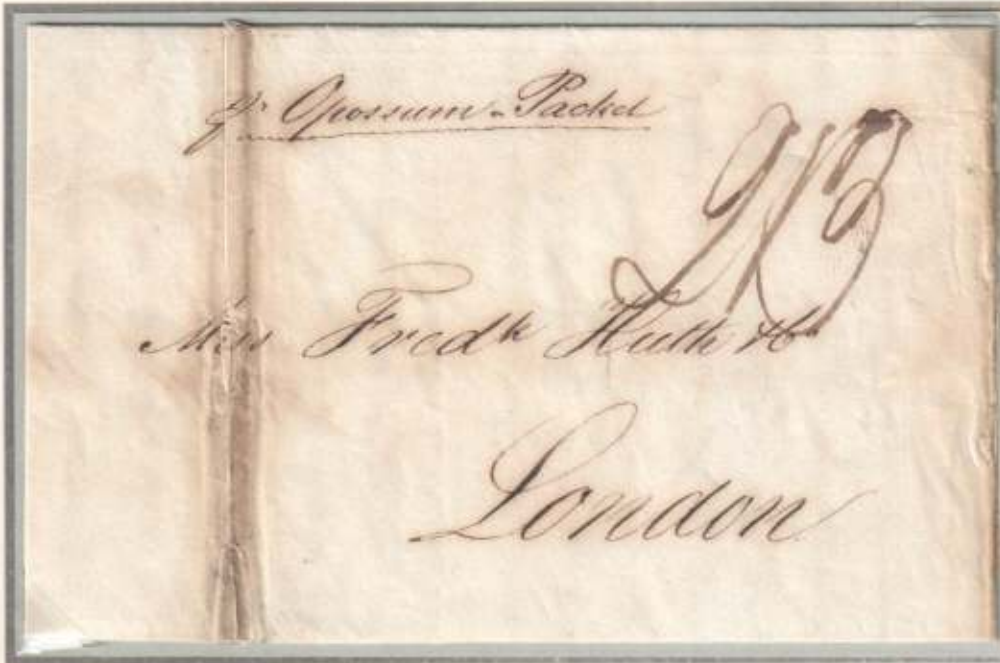 pr Opossum Packet
2/3
Mess Fredk Huth & Co
London